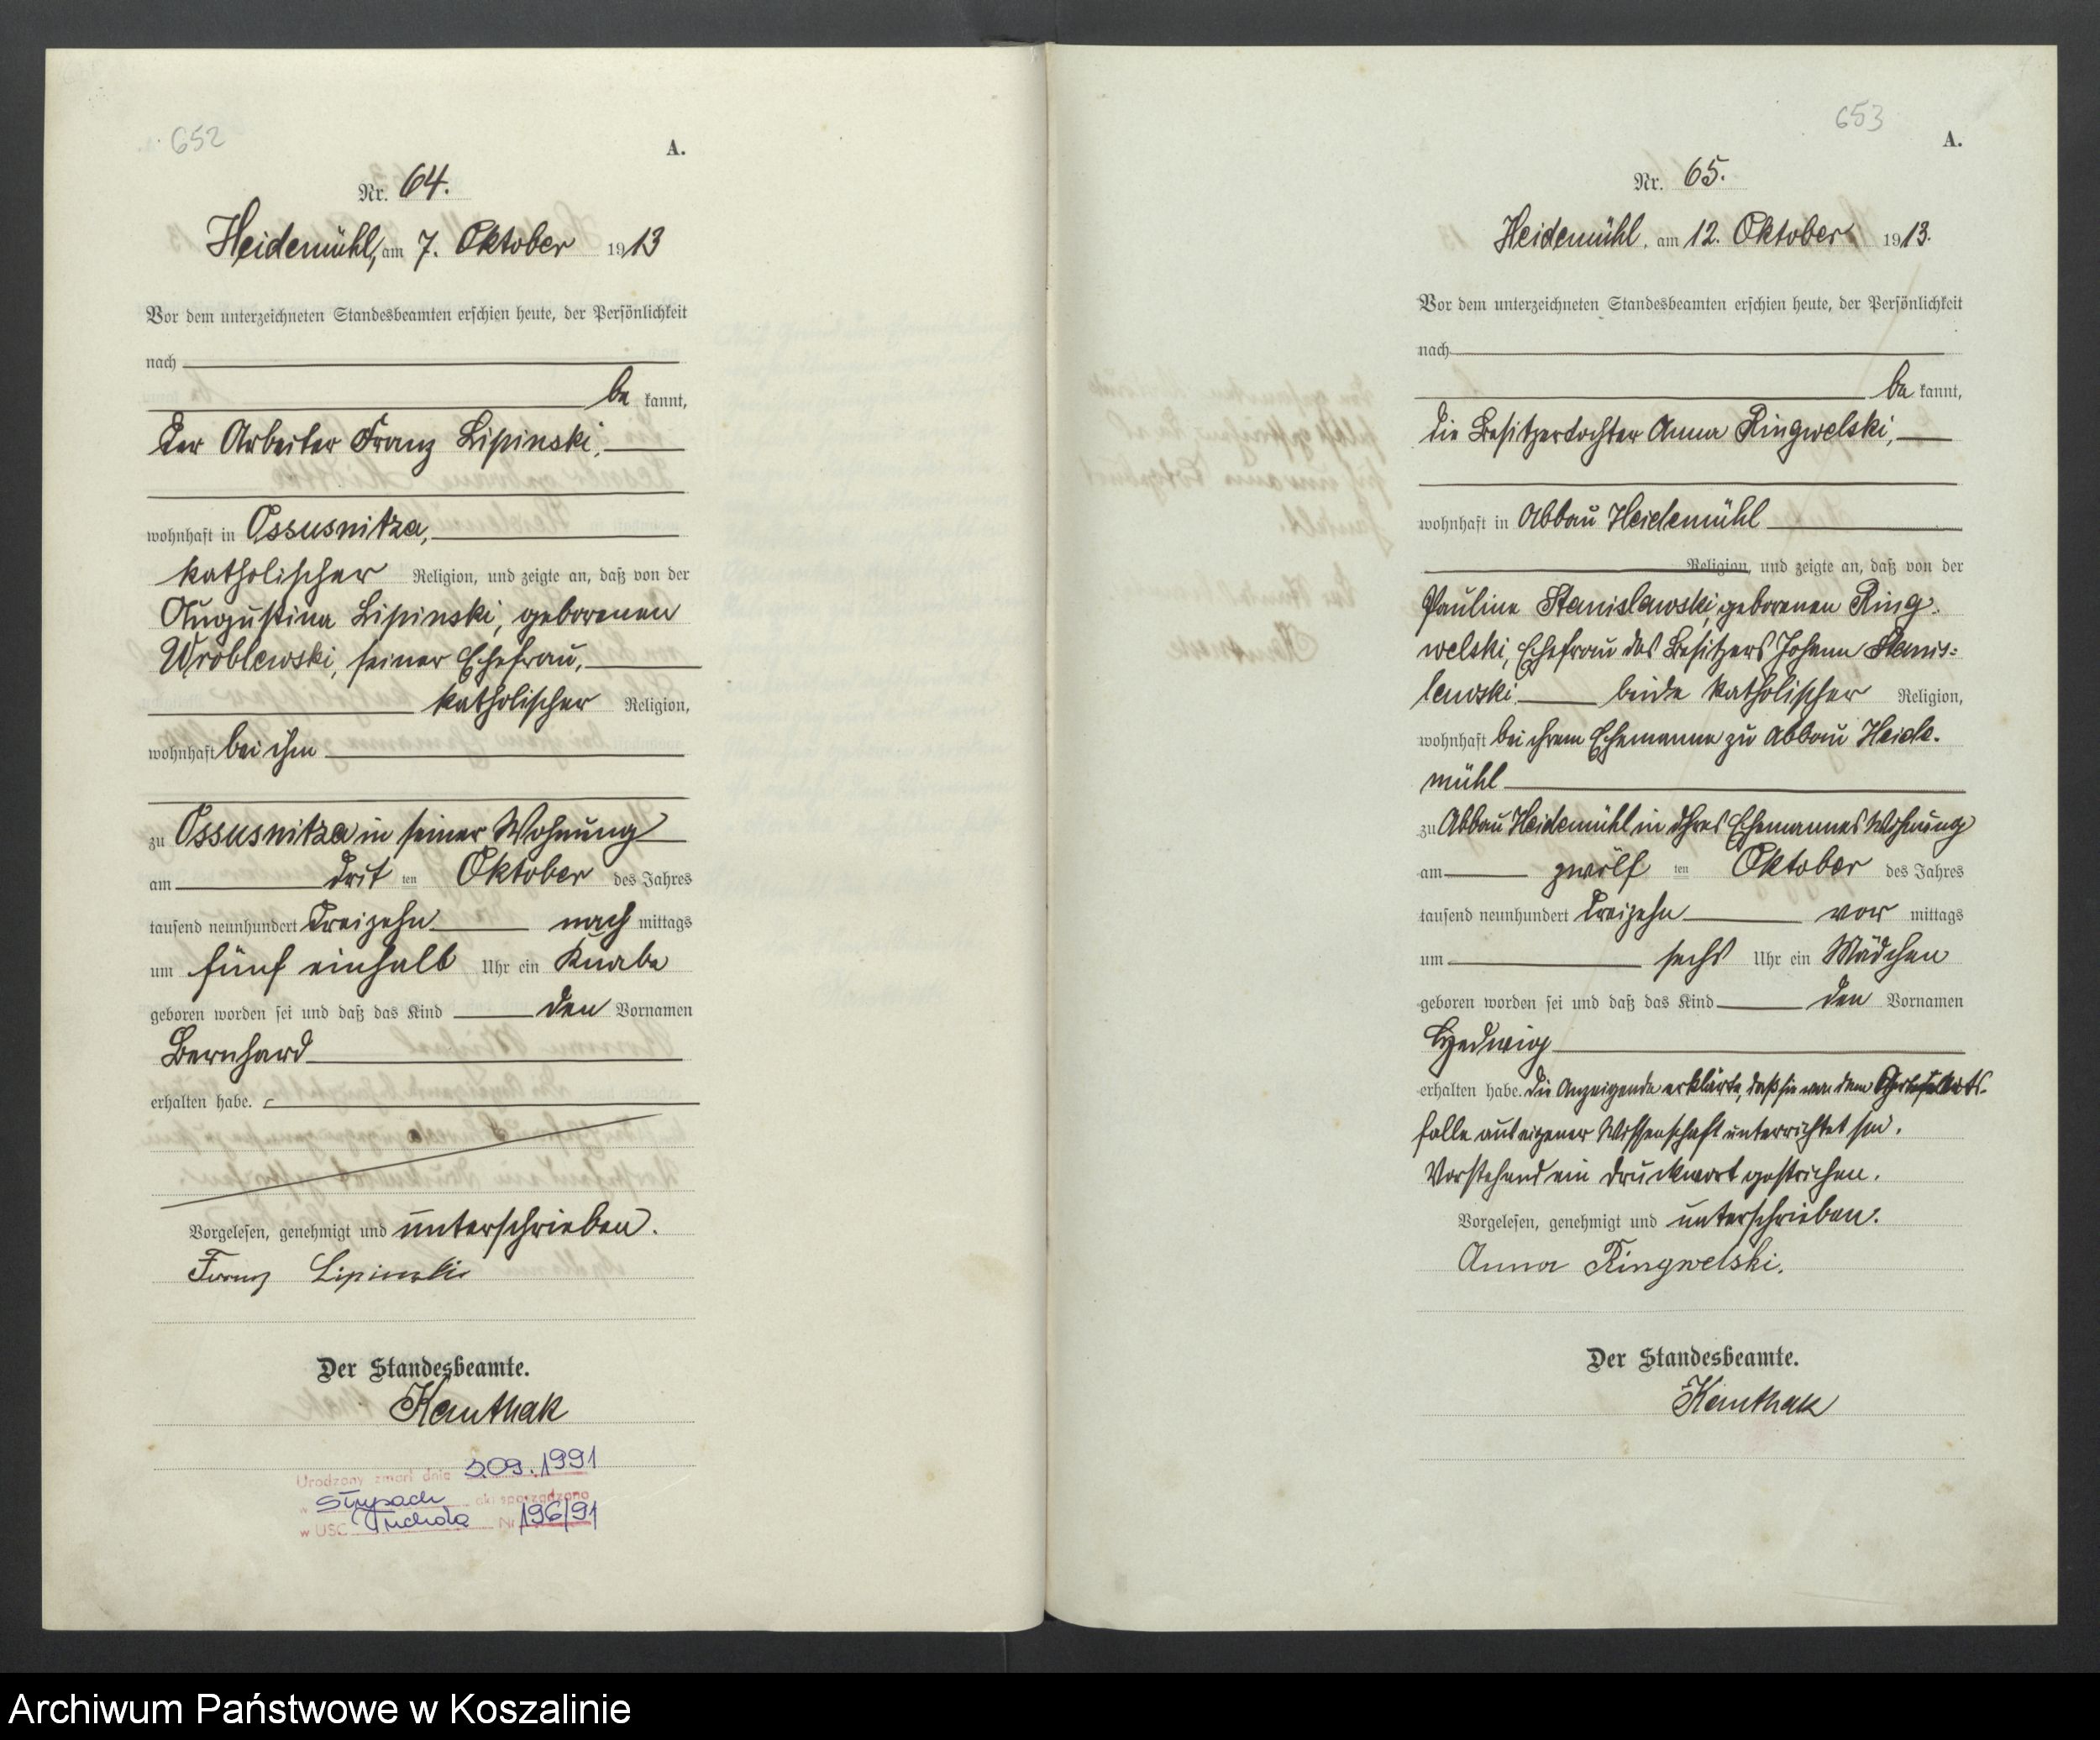 652
A.
Nr. 64.
Heidemühl, am 7. Oktober 1913
Vor dem unterzeichneten Standesbeamten erschien heute, der Persönlichkeit
nach
be kannt,
der Arbeiter Franz Lipinski,
wohnhaft in Ossusnitza,
katholischer Religion, und zeigte an, daß von der
Augustina Lipinski, geborenen
Wroblewski, seiner Ehefrau,
katholischer Religion,
wohnhaft bei ihm
zu Ossusnitza in seiner Wohnung
am dritten Oktober des Jahres
tausend neunhundert dreizehn nach mittags
um fünf einhalb Uhr ein Knabe
geboren worden sei und daß das Kind den Vornamen
Bernhard
erhalten habe.
Vorgelesen, genehmigt und unterschrieben.
Franz Lipinski
Der Standesbeamte.
Kanthak
Urodzony zmarł dnia 3.09.1991
w Słupach akt sporządzono
w USC Tuchola Nr 196/91
653
A.
Nr. 65.
Heidemühl, am 12. Oktober 1913.
Vor dem unterzeichneten Standesbeamten erschien heute, der Persönlichkeit
nach
be kannt,
die Besitzertochter Anna Ringwelski,
wohnhaft in Abbau Heidemühl
Religion, und zeigte an, daß von der
Pauline Stanislawski, geborenen Ring-
welski, Ehefrau des Besitzers Johann Stanis-
lewski beide katholischer Religion,
wohnhaft bei ihrem Ehemanne zu Abbau Heide-
mühl
zu Abbau Heidemühl in ihres Ehemannes Wohnung
am zwölften Oktober des Jahres
tausend neunhundert dreizehn vor mittags
um sechs Uhr ein Mädchen
geboren worden sei und daß das Kind den Vornamen
Hedwig
erhalten habe. Die Anzeigende erklärte, daß sie von dem Geburts-
falle aus eigener Wissenschaft unterrichtet sei.
Vorstehend ein Druckwort gestrichen.
Vorgelesen, genehmigt und unterschrieben.
Anna Ringwelski.
Der Standesbeamte.
Kanthak
Archiwum Państwowe w Koszalinie